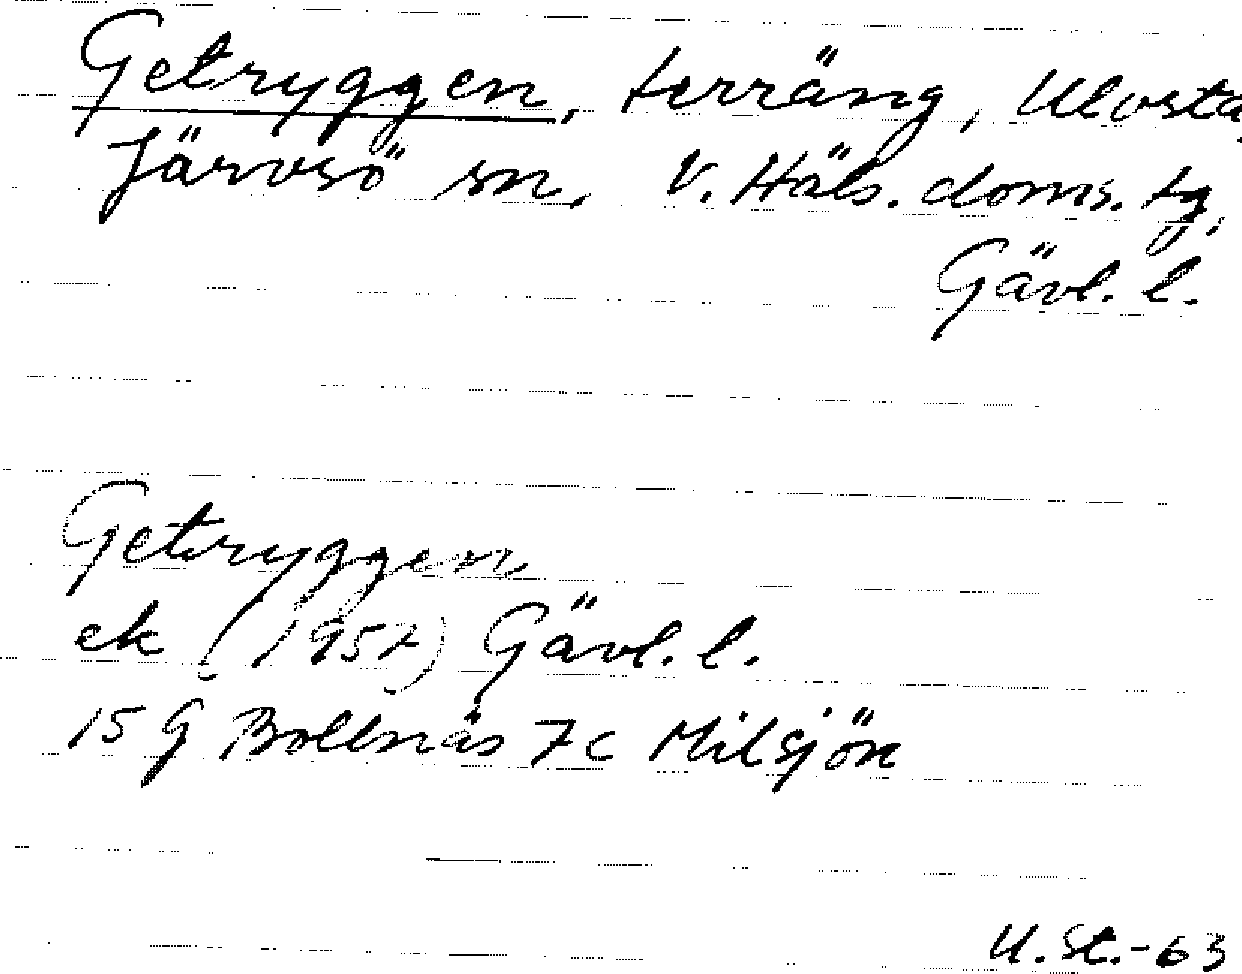 Getryggen, terräng, Ulvsta,
Järvsö sn, V. Häls. doms. tg,
Gävl. l.
Getryggen,
ek (1957) Gävl. l.
15 G Bollnäs 7c Milsjön
U. St. -63